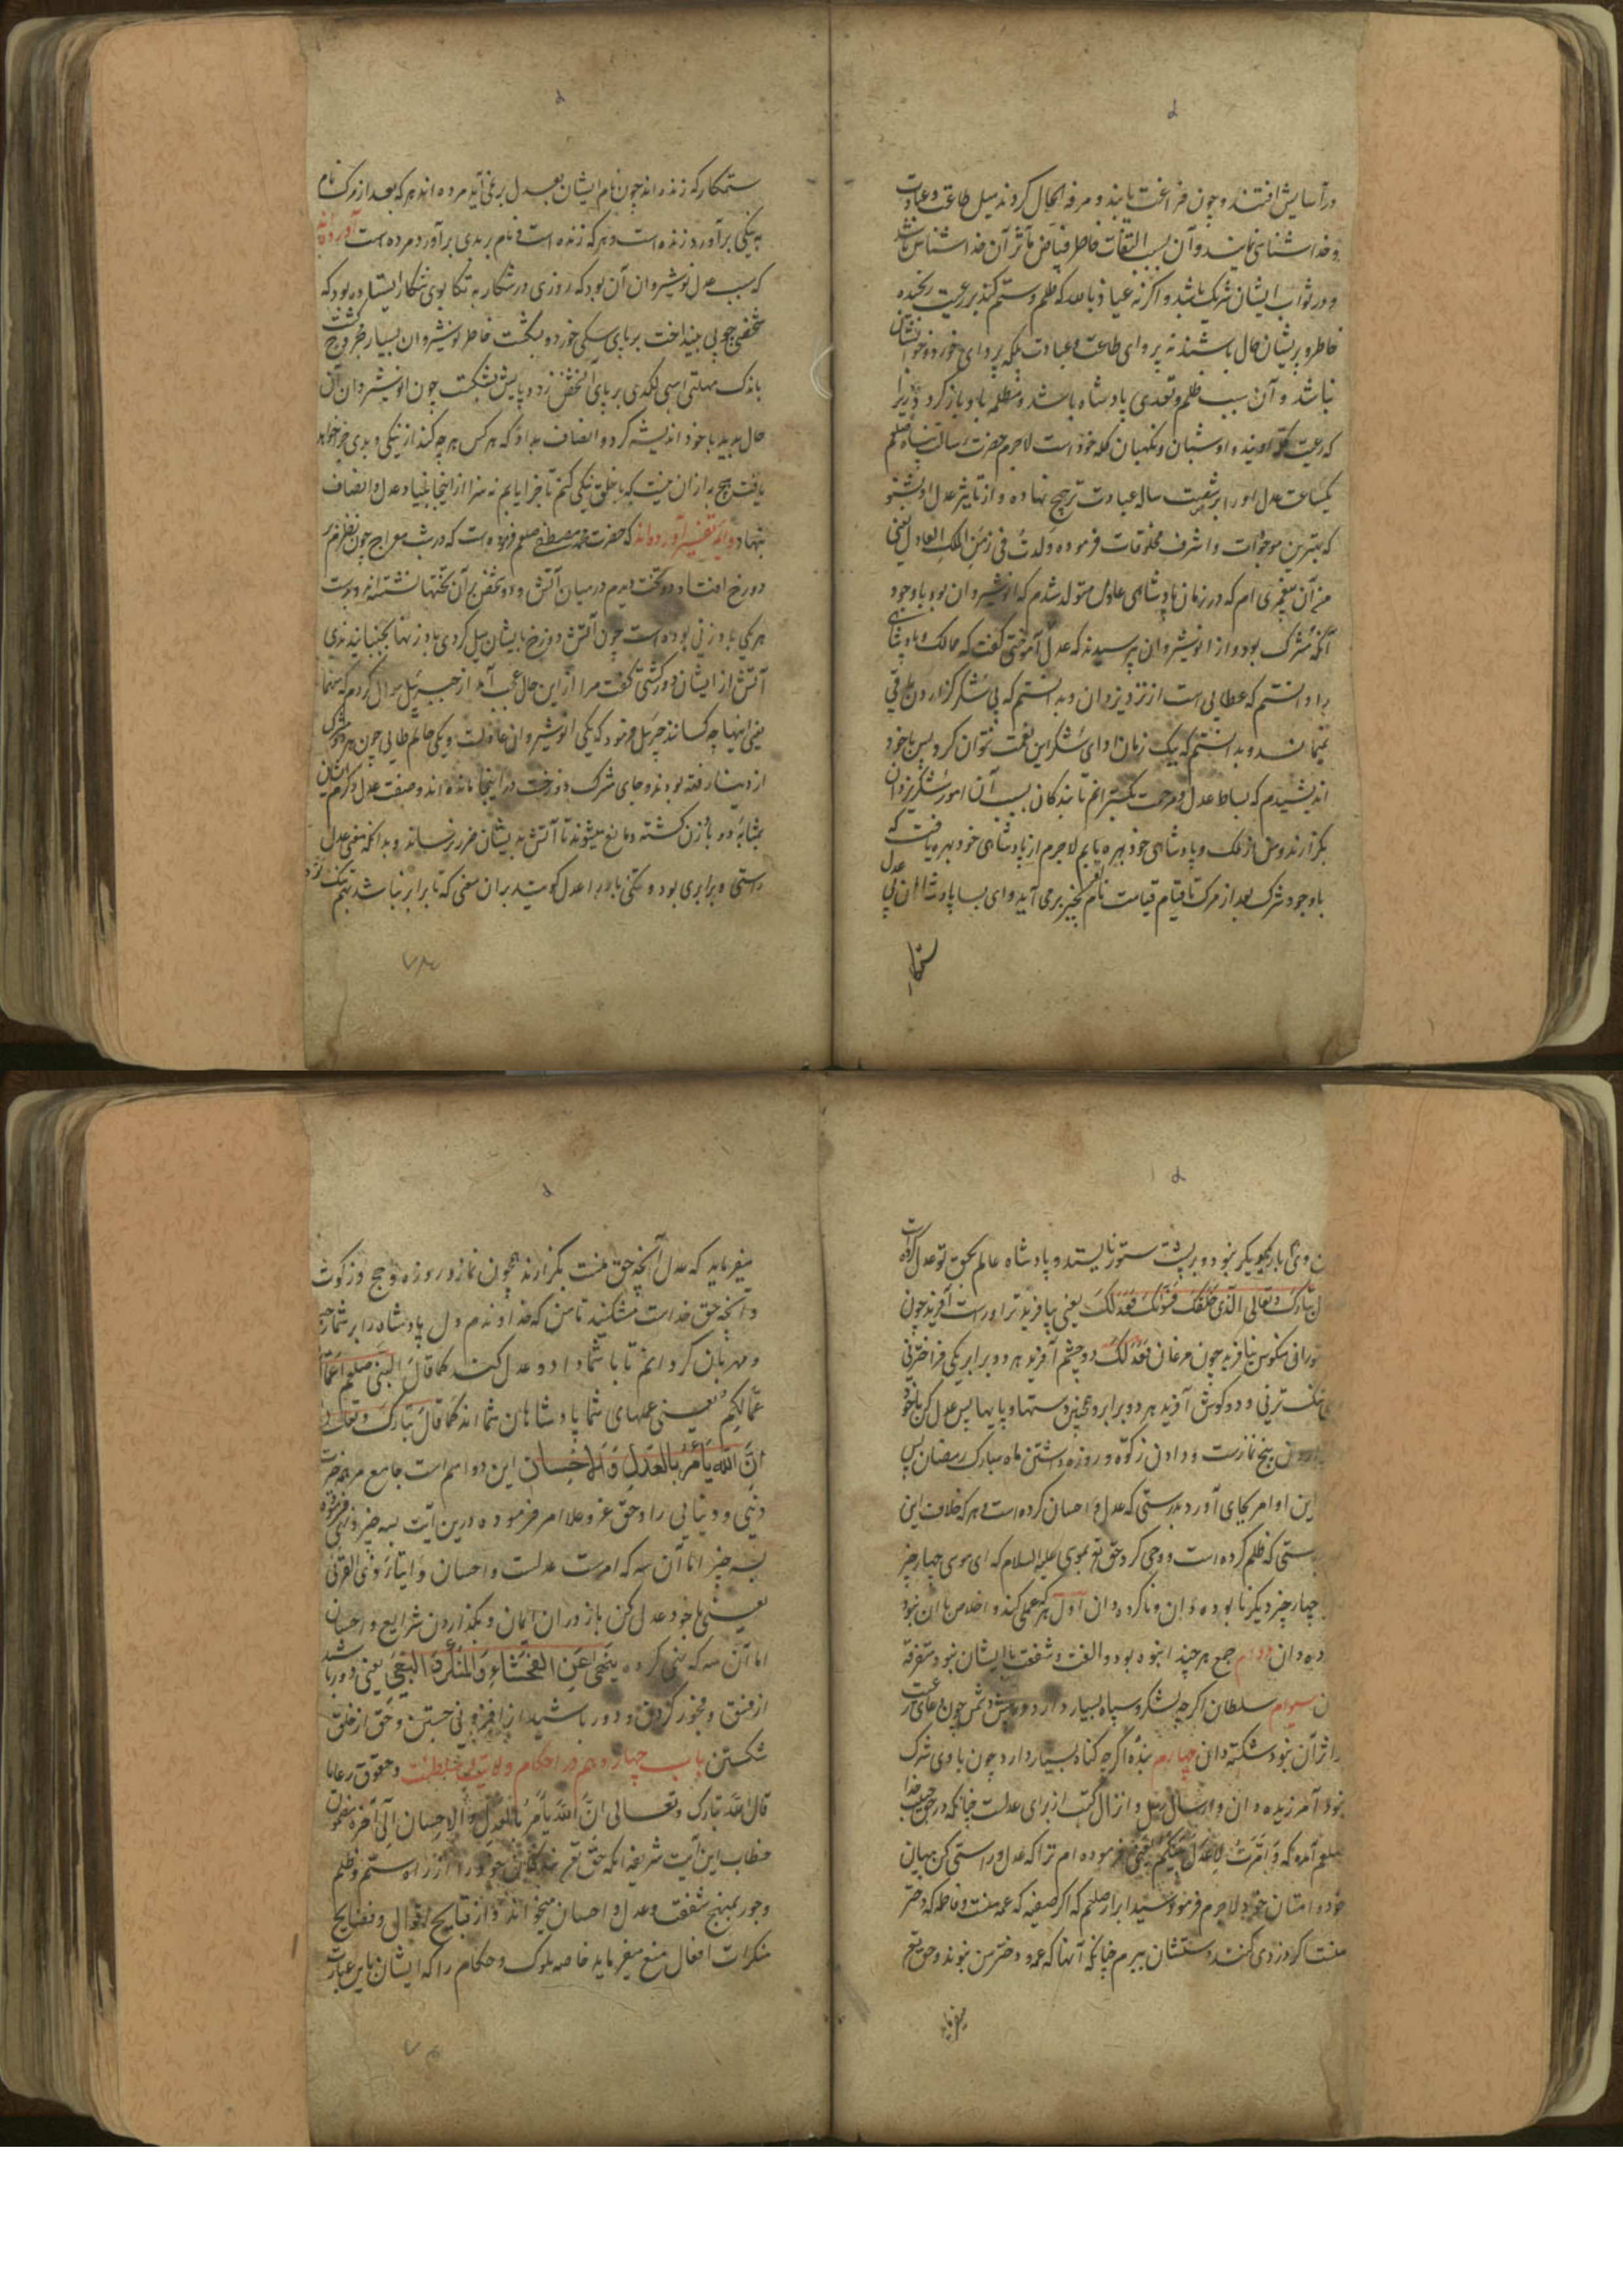 در آسایش افتند و چون فراغت یابند و مرفه الحال کردند میل طاعت و عبادت
و خداشناسی نمایند و آن بسبب التفات خاطر فیاض مآثر آن خداشناس باشد
و در ثواب ایشان شریک باشد و اکر نه عیاذ بالله که ظلم و ستم کند بر رعیت رنجیده
خاطر و پریشان حال باشند نه پروای طاعت و عبادت بلکه پروای خورد و خوابشان
نباشد و آن سبب ظلم و تعدی پادشاه باشد و مظلمه باو باز کردد زیرا
که رعیت کله اویند و او شبان و نکهبان کله خود است لاجرم حضرت رسالت پناه صلعم
یکساعت عدل او را بر شصت ساله عبادت ترجیح نهاده و از تاثیر عدل او بشنو
که بهترین موجودات و اشرف مخلوقات فرموده ولدت فی زمن الملک العادل یعنی
من آن پیغمبری ام که در زمان پادشاهی عادل متولد شدم که انوشیروان بود با وجود
آنکه مشرک بود و از انوشیروان پرسیدند که عدل از که آموختی کفت که ممالک و پادشاهی
را دانستم که عطایی است از نزد یزدان و بدانستم که بی شکر کزاردن باقی
نمیماند و بدانستم که بیک زبان ادای شکر این نعمت نتوان کرد پس با خود
اندیشیدم که بساط عدل و مرحمت بکسترانم تا بندکان بسبب آن امور شکر یزدان
بکزارند و من از ملک و پادشاهی خود بهره یابم لاجرم از پادشاهی خود بهره یافت که
با وجود شرک بعد از مرک تا قیام قیامت نام او بخیر برمی آید وای بسا پادشاهان بی عدل
ستمکار
ستمکار که زنده اند چون نام ایشان بعدل بر نمی آید مرده اند هر که بعد از مرک نام
به نیکی برآورد زنده است و هر که زنده است و نام بر بدی برآورد مرده است آورده اند
که سبب عدل نوشیروان آن بود که روزی در شکار به تکاپوی شکار ایستاده بود که
شخصی چوبی بینداخت بر پای سکی خورد و بشکست خاطر نوشیروان بسیار مجروح کشت
باندک مهلتی اسبی لکدی بر پای آن شخص زد و پایش بشکست چون انوشیروان آن
حال بدید با خود اندیشه کرد و انصاف بداد که هر کس هر چه کند از نیکی و بدی جزا خواهد
یافت هیچ به ازان نیست که با خلق نیکی کنم تا جزا یابم نه سزا از اینجا بنیاد عدل و انصاف
نهاد و ایمه تفسیر آورده اند که حضرت محمد مصطفی صلعم فرموده است که در شب معراج چون نظرم بر
دوزخ افتاد دو تخت دیدم در میان آتش و دو شخص بر آن تختها نشسته اند و بر دست
هر یکی باد زنی بوده است چون آتش دوزخ بایشان میل کردی باد زنها بجنبانیدندی
آتش از ایشان دور کشتی کفت مرا از این حال عجب آمد از جبرییل سوال کردم که من هما
یعنی اینها چه کسانند جبرییل فرمود که یکی انوشیروان عادلست و یکی حاتم طایی چون هر دو مشرک
از دنیا رفته بودند و جای مشرک دوزخ است در اینجا مانده اند و صفت عدل و کرم ایشان
بمثابه دو باد زن کشته و مانع میشوند تا آتش بدیشان ضرر نرساند و بدانکه معنی عدل
راستی و برابری بود و یکتنی باربر را عدل کویند بران معنی که تا برابر نباشد بهم
وی بار بجو یکبر نبود و بر پشت ستور نایستد و پادشاه عالم بحق تو عدل کرده است
تبارک و تعالی الذی خلقک فسواک فعدلک یعنی بیافرید ترا و راست آفرید چون
ستورانی منکوس نیافرید چون مرغان فعدلک دو چشم آفرید هر دو برابر یکی فراختر نی
تنک تر نی و دو کوش آفرید هر دو برابر و همچنین دستها و پایها پس عدل کن با خود
پنج نمازست و دادن زکوة و روزه داشتن ماه مبارک رمضان پس
این اوامر بجای آورد بدرستی که عدل و احسان کرده است و هر که خلاف این
بدرستی که ظلم کرده است و وحی کرد حق تع بموسی علیه السلام که ای موسی چهار چیز
چهار چیز دیکر نابوده دان و ناکرده دان اول هر که عملی کند و اخلاص با آن نبود
ده دان دوام جمع هر چند انبوه بود و الفت و شفقت با ایشان نبود متفرقه
سوام سلطان اکرچه لشکر و سپاه بسیار دارد چون دعای رعیت
اثر آن نبود شکسته دان چهارم بنده اکر چه کناه بسیار دارد چون با وی شرک
نبود آمرزیده دان و ارسال رسل و انزال کتب از برای عدلست چنانکه در حق حبیب خدا
صلعم آمده که و امرت لاعدل بینکم یعنی فرموده ام ترا که عدل و راستی کن میان
خود و امتان خود لاجرم فرمود سید ابرار صلعم که اکر صفیه که عمه منست و فاطمه که دختر
منست اکر دزدی کنند دستشان ببرم چنانکه آنها که عمه و دختر من نبوند و حق تع
میفرماید
میفرماید که عدل آنچه حق منست بکزارند همچون نماز و روزه و حج و زکوة
و آنچه حق خداست مشکنید تا من که خداوندم دل پادشاه را بر شما رحیم
و مهربان کردانم تا با شما داد و عدل کند کما قال النبی صلعم اعمالکم
عمالکم یعنی عملهای شما پادشاهان شما اند کما قال تبارک و تعالی
ان الله یامر بالعدل و الاحسان این دو اسم است جامع مر همه خیرات
دینی و دنیایی را و حق عز و علا امر فرموده درین آیت بسه چیز و نهی فرموده
بسه چیز اما آن سه که امرست عدلست و احسان و ایتاء ذی القربی
یعنی با خود عدل کن بآوردن ایمان و بکذاردن شرایع و احسان
اما آن سه که نهی کرده ینهی عن الفحشاء و المنکر و البغی یعنی دور باشید
از فسق و فجور کردن و دور باشید از افزونی جستن و حق از خلق
شکستن باب چهاردهم در احکام ولایت سلطنت و حقوق رعایا
قال الله تبارک و تعالی ان الله یأمر بالعدل و الاحسان الی آخره مضمون
خطاب این آیت شریفه آنکه حق تع بندکان خود را از راه ستم و ظلم
و جور بمنهج شفقت و عدل و احسان میخواند و از قبایح اقوال و فضایح
منکرات افعال منع میفرماید خاصه ملوک و حکام را که ایشان باین عبارت